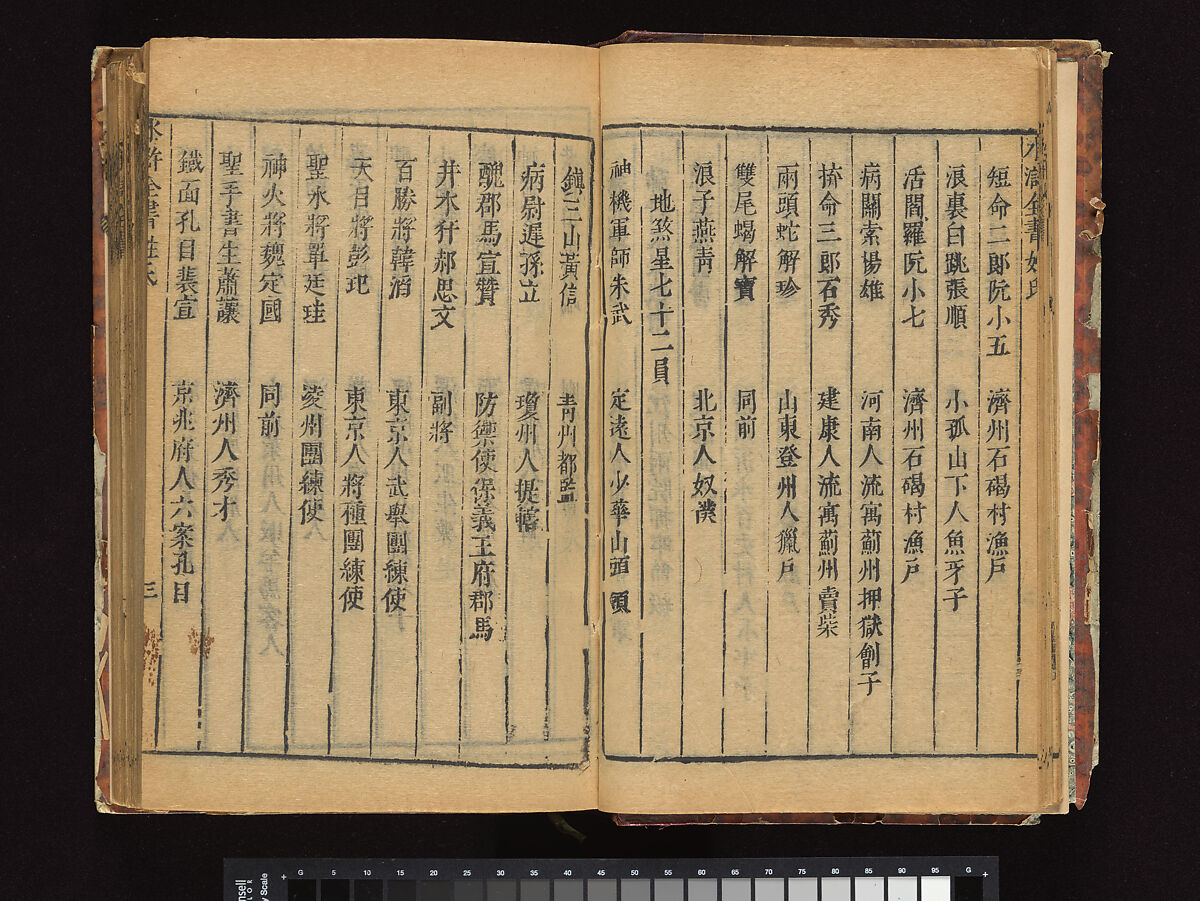 水滸全書姓氏
短命二郎阮小五 濟州石碣村漁戶
浪裏白跳張順 小孤山下人魚牙子
活閻羅阮小七 濟州石碣村漁戶
病關索楊雄 河南人流寓薊州押獄劊子
拚命三郎石秀 建康人流寓薊州賣柴
兩頭蛇解珍 山東登州人獵戶
雙尾蝎解寶 同前
浪子燕青 北京人奴僕
地煞星七十二員
神機軍師朱武 定遠人少華山頭領
鎮三山黃信 青州都監
病尉遲孫立 瓊州人提轄
醜郡馬宣贊 防禦使保義王府郡馬
井木犴郝思文 副將
百勝將韓滔 東京人武舉團練使
天目將彭玘 東京人將種團練使
聖水將單廷珪 凌州團練使
神火將魏定國 同前
聖手書生蕭讓 濟州人秀才
鐵面孔目裴宣 京兆府人六案孔目
水滸全書姓氏 三
G 5 10 15 20 25 30 35 40 45 50 55 60 65 70 75 80 85 90 95 G